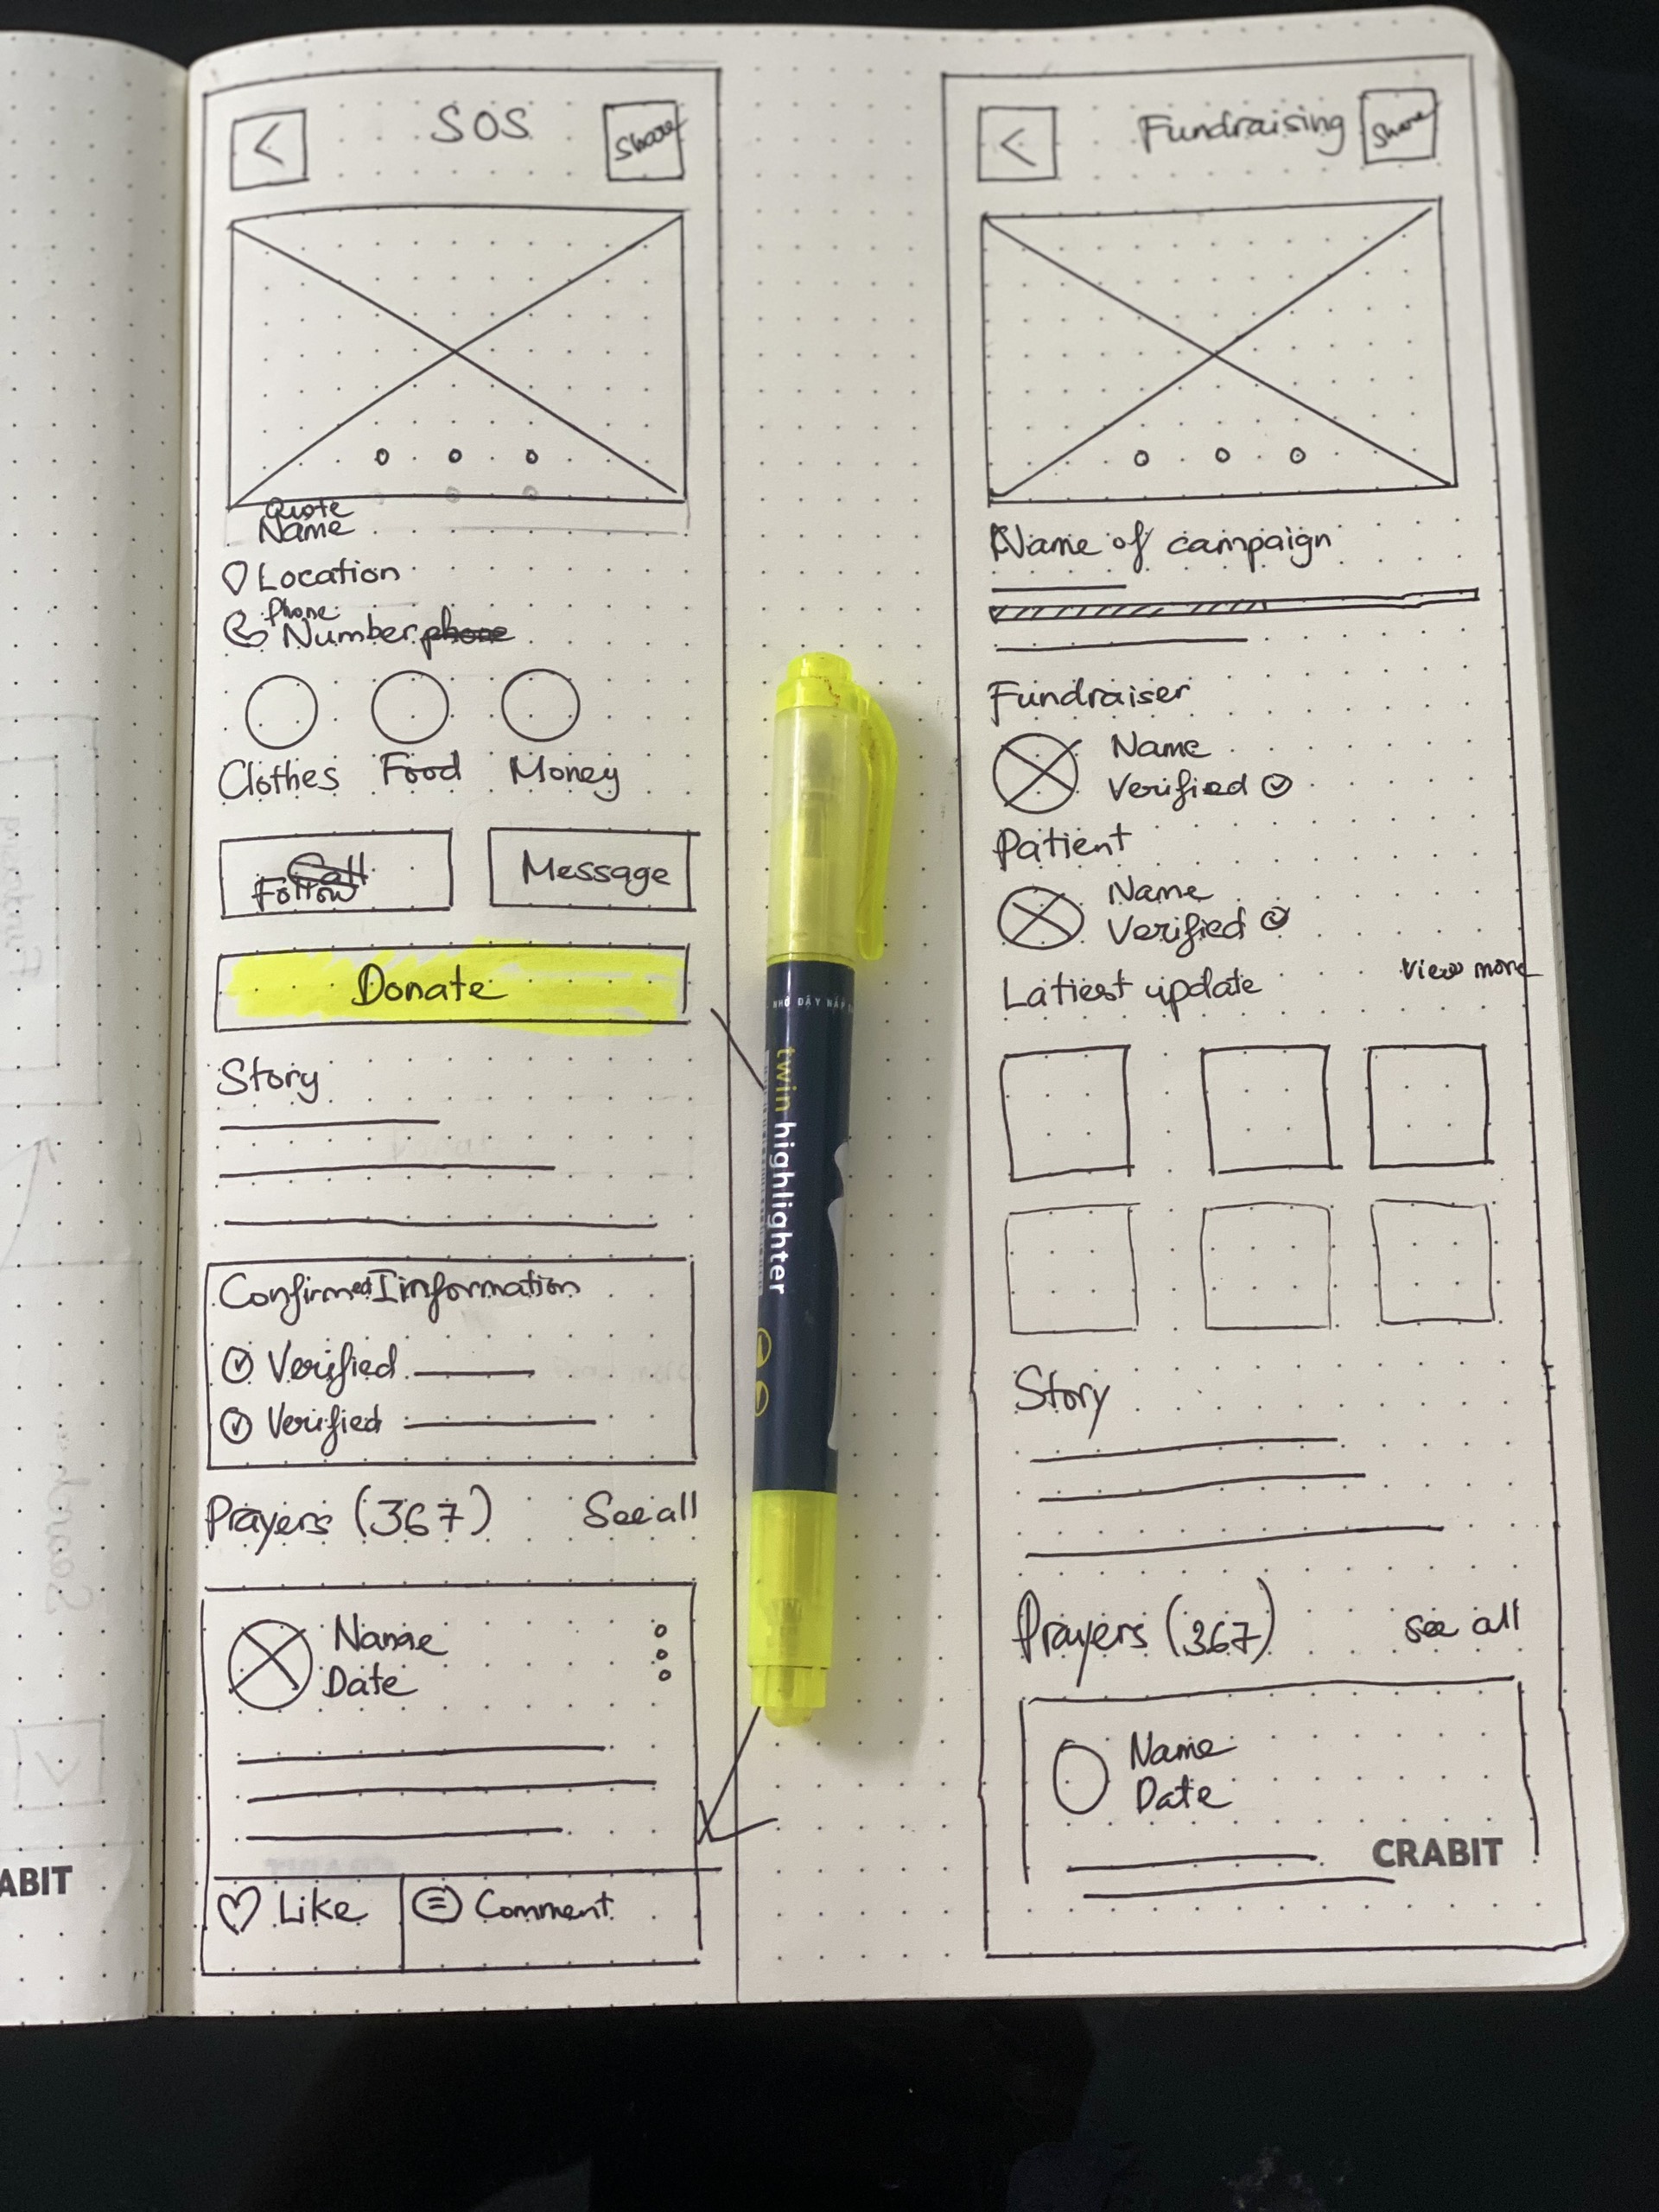 SOS
Share
Quote
Name
Location
Phone
Number phone
Clothes Food Money
Call
Follow
Message
Donate
Story
Confirmed Iinformation
Verified
Verified
Prayers (367) See all
Name
Date
Like Comment
twin highlighter
Fundraising
Share
Name of campaign
Fundraiser
Name
Verified
Patient
Name
Verified
Latiest update view more
Story
Prayers (367) see all
Name
Date
CRABIT
ABIT